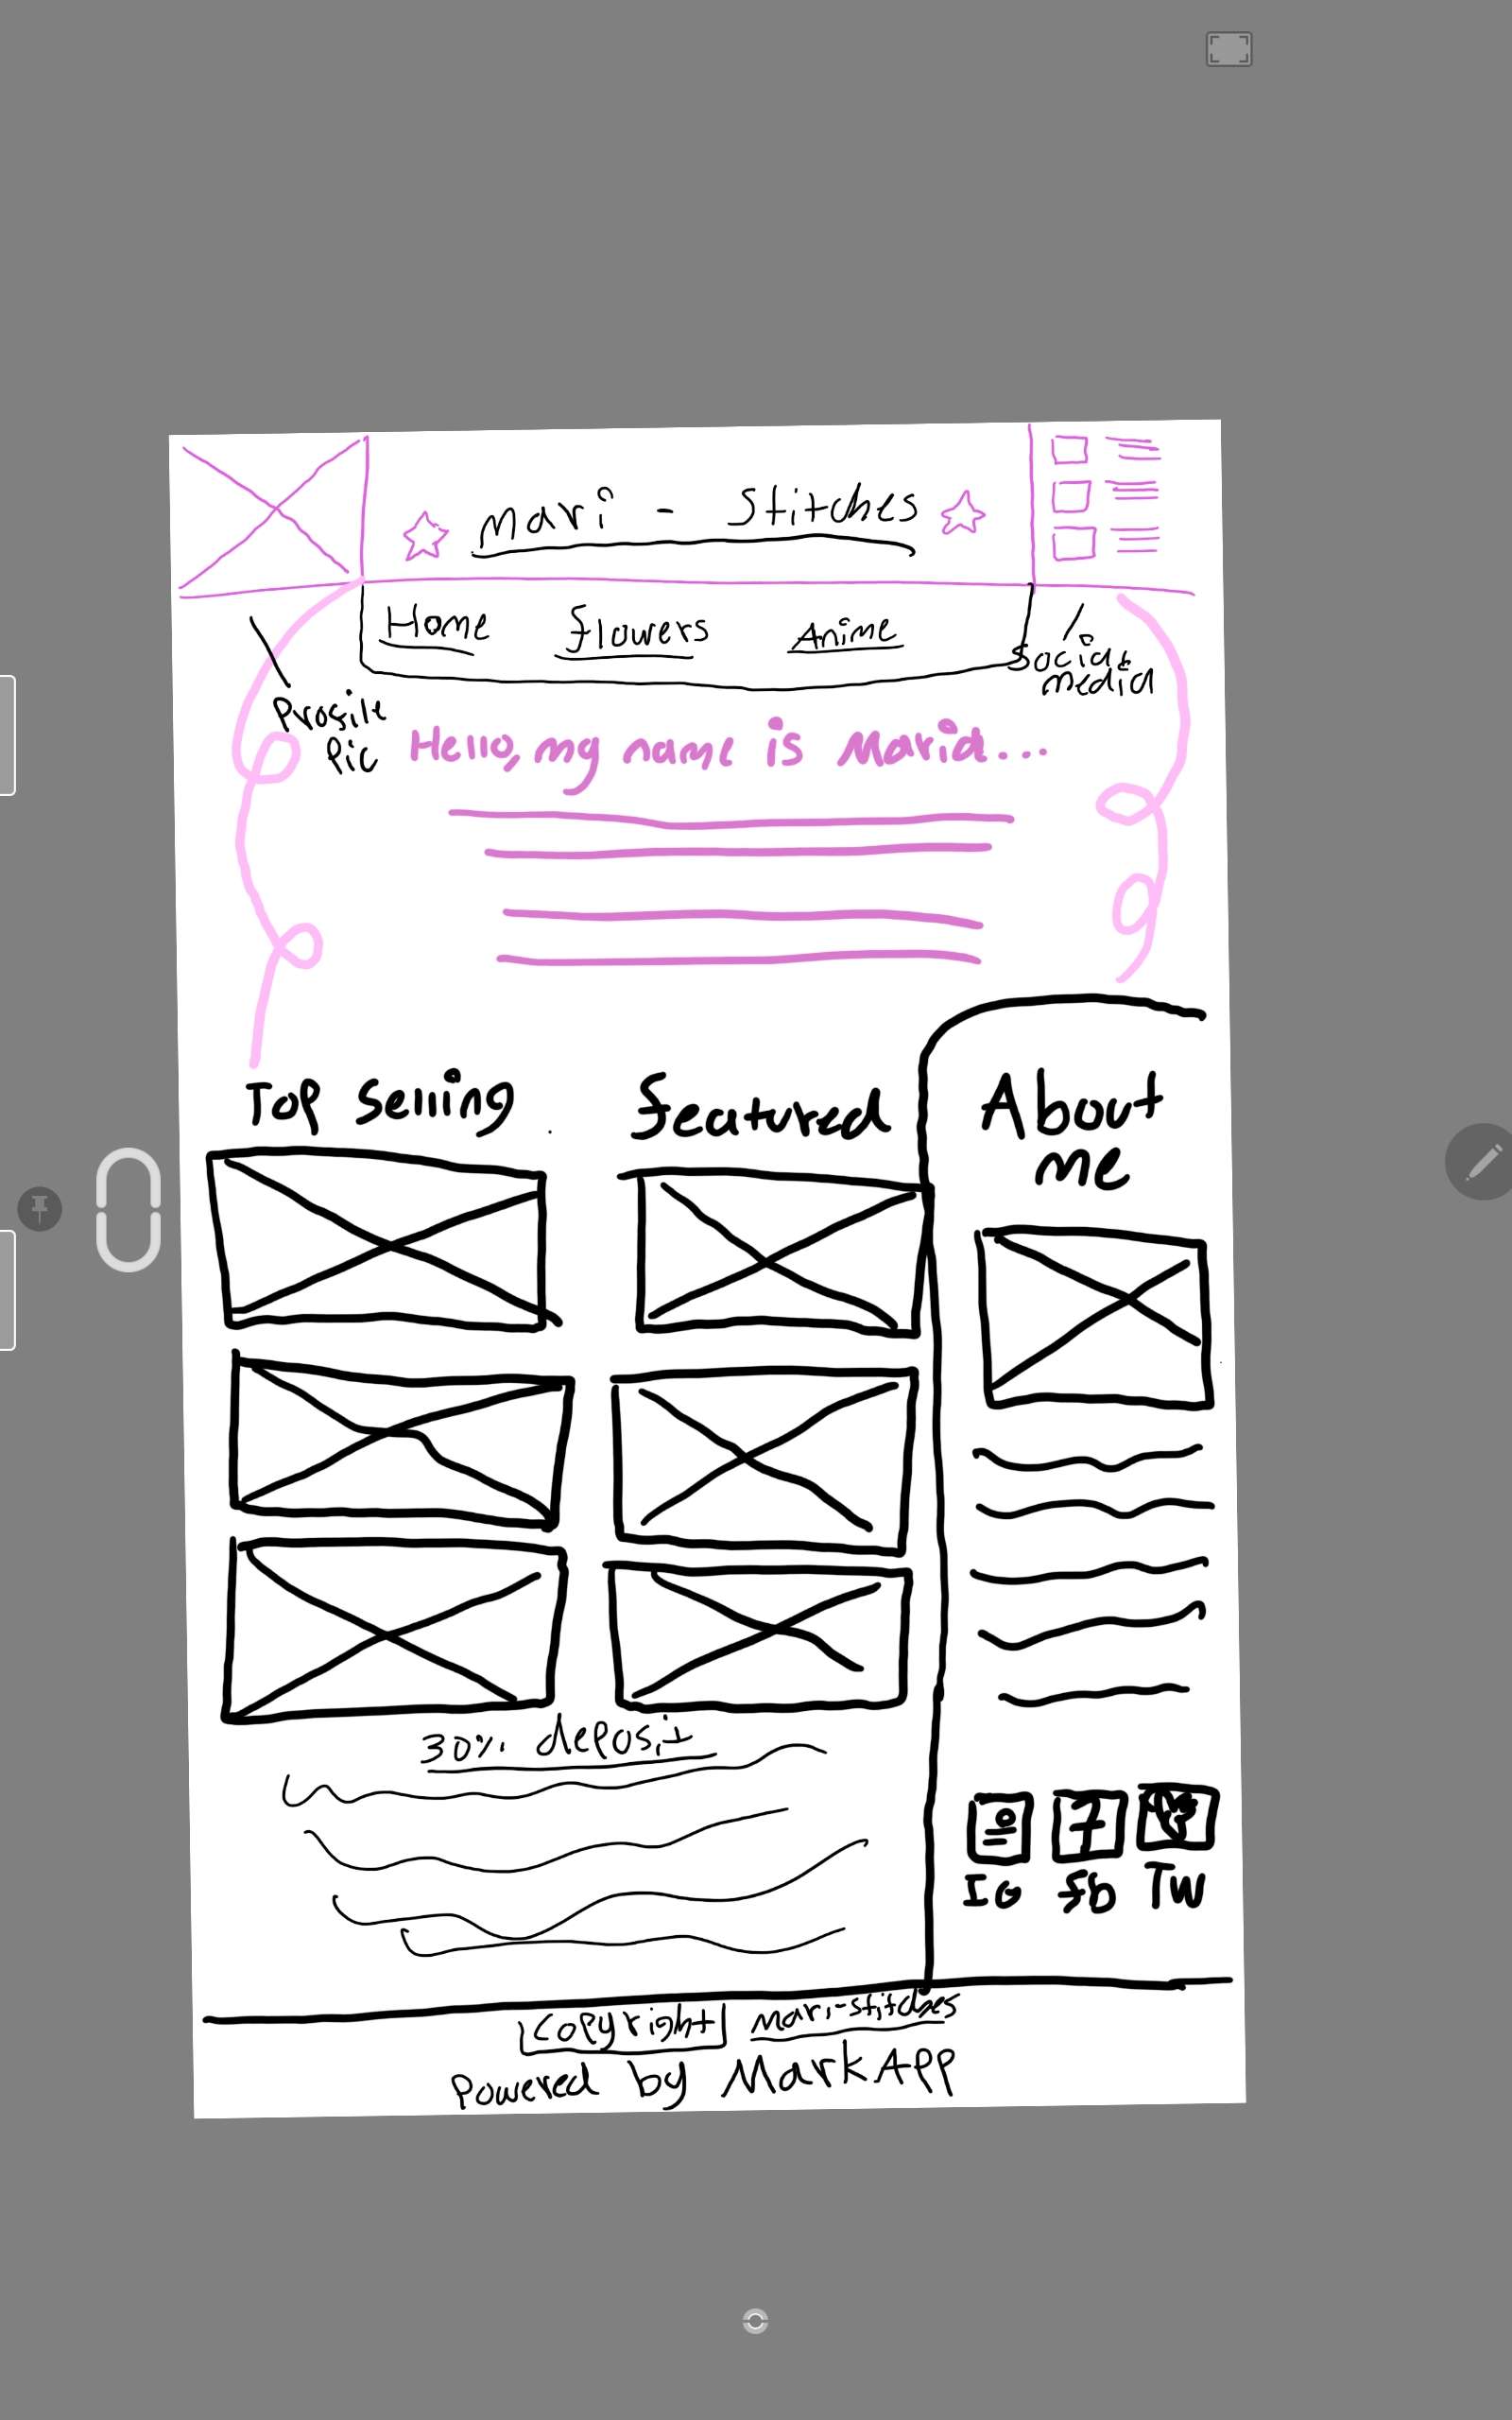 Mari - Stitches
Home Flowers Anime
Profile
Pic
Social
media
Hello, my name is Maria....
Top selling
Featured
About
me
30% deposit
IG FB TW
Copyright Mari-stitches
Powered by MarkAPP